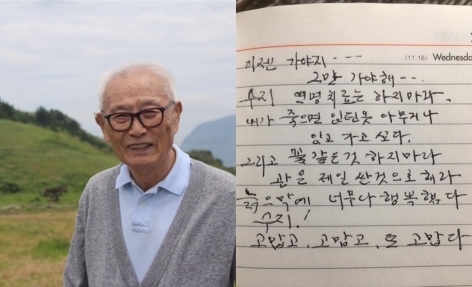 (11.16) Wednesday
이젠 가야지 ---
그만 가야해 --.
수지 연명치료는 하지마라.
내가 죽으면 입던옷 아무거나
입고 가고 싶다.
그리고 꽃 같은것 하지마라
관은 제일 싼것으로 해라
너무나 행복했다
수지!
고맙고, 고맙고, 또 고맙다